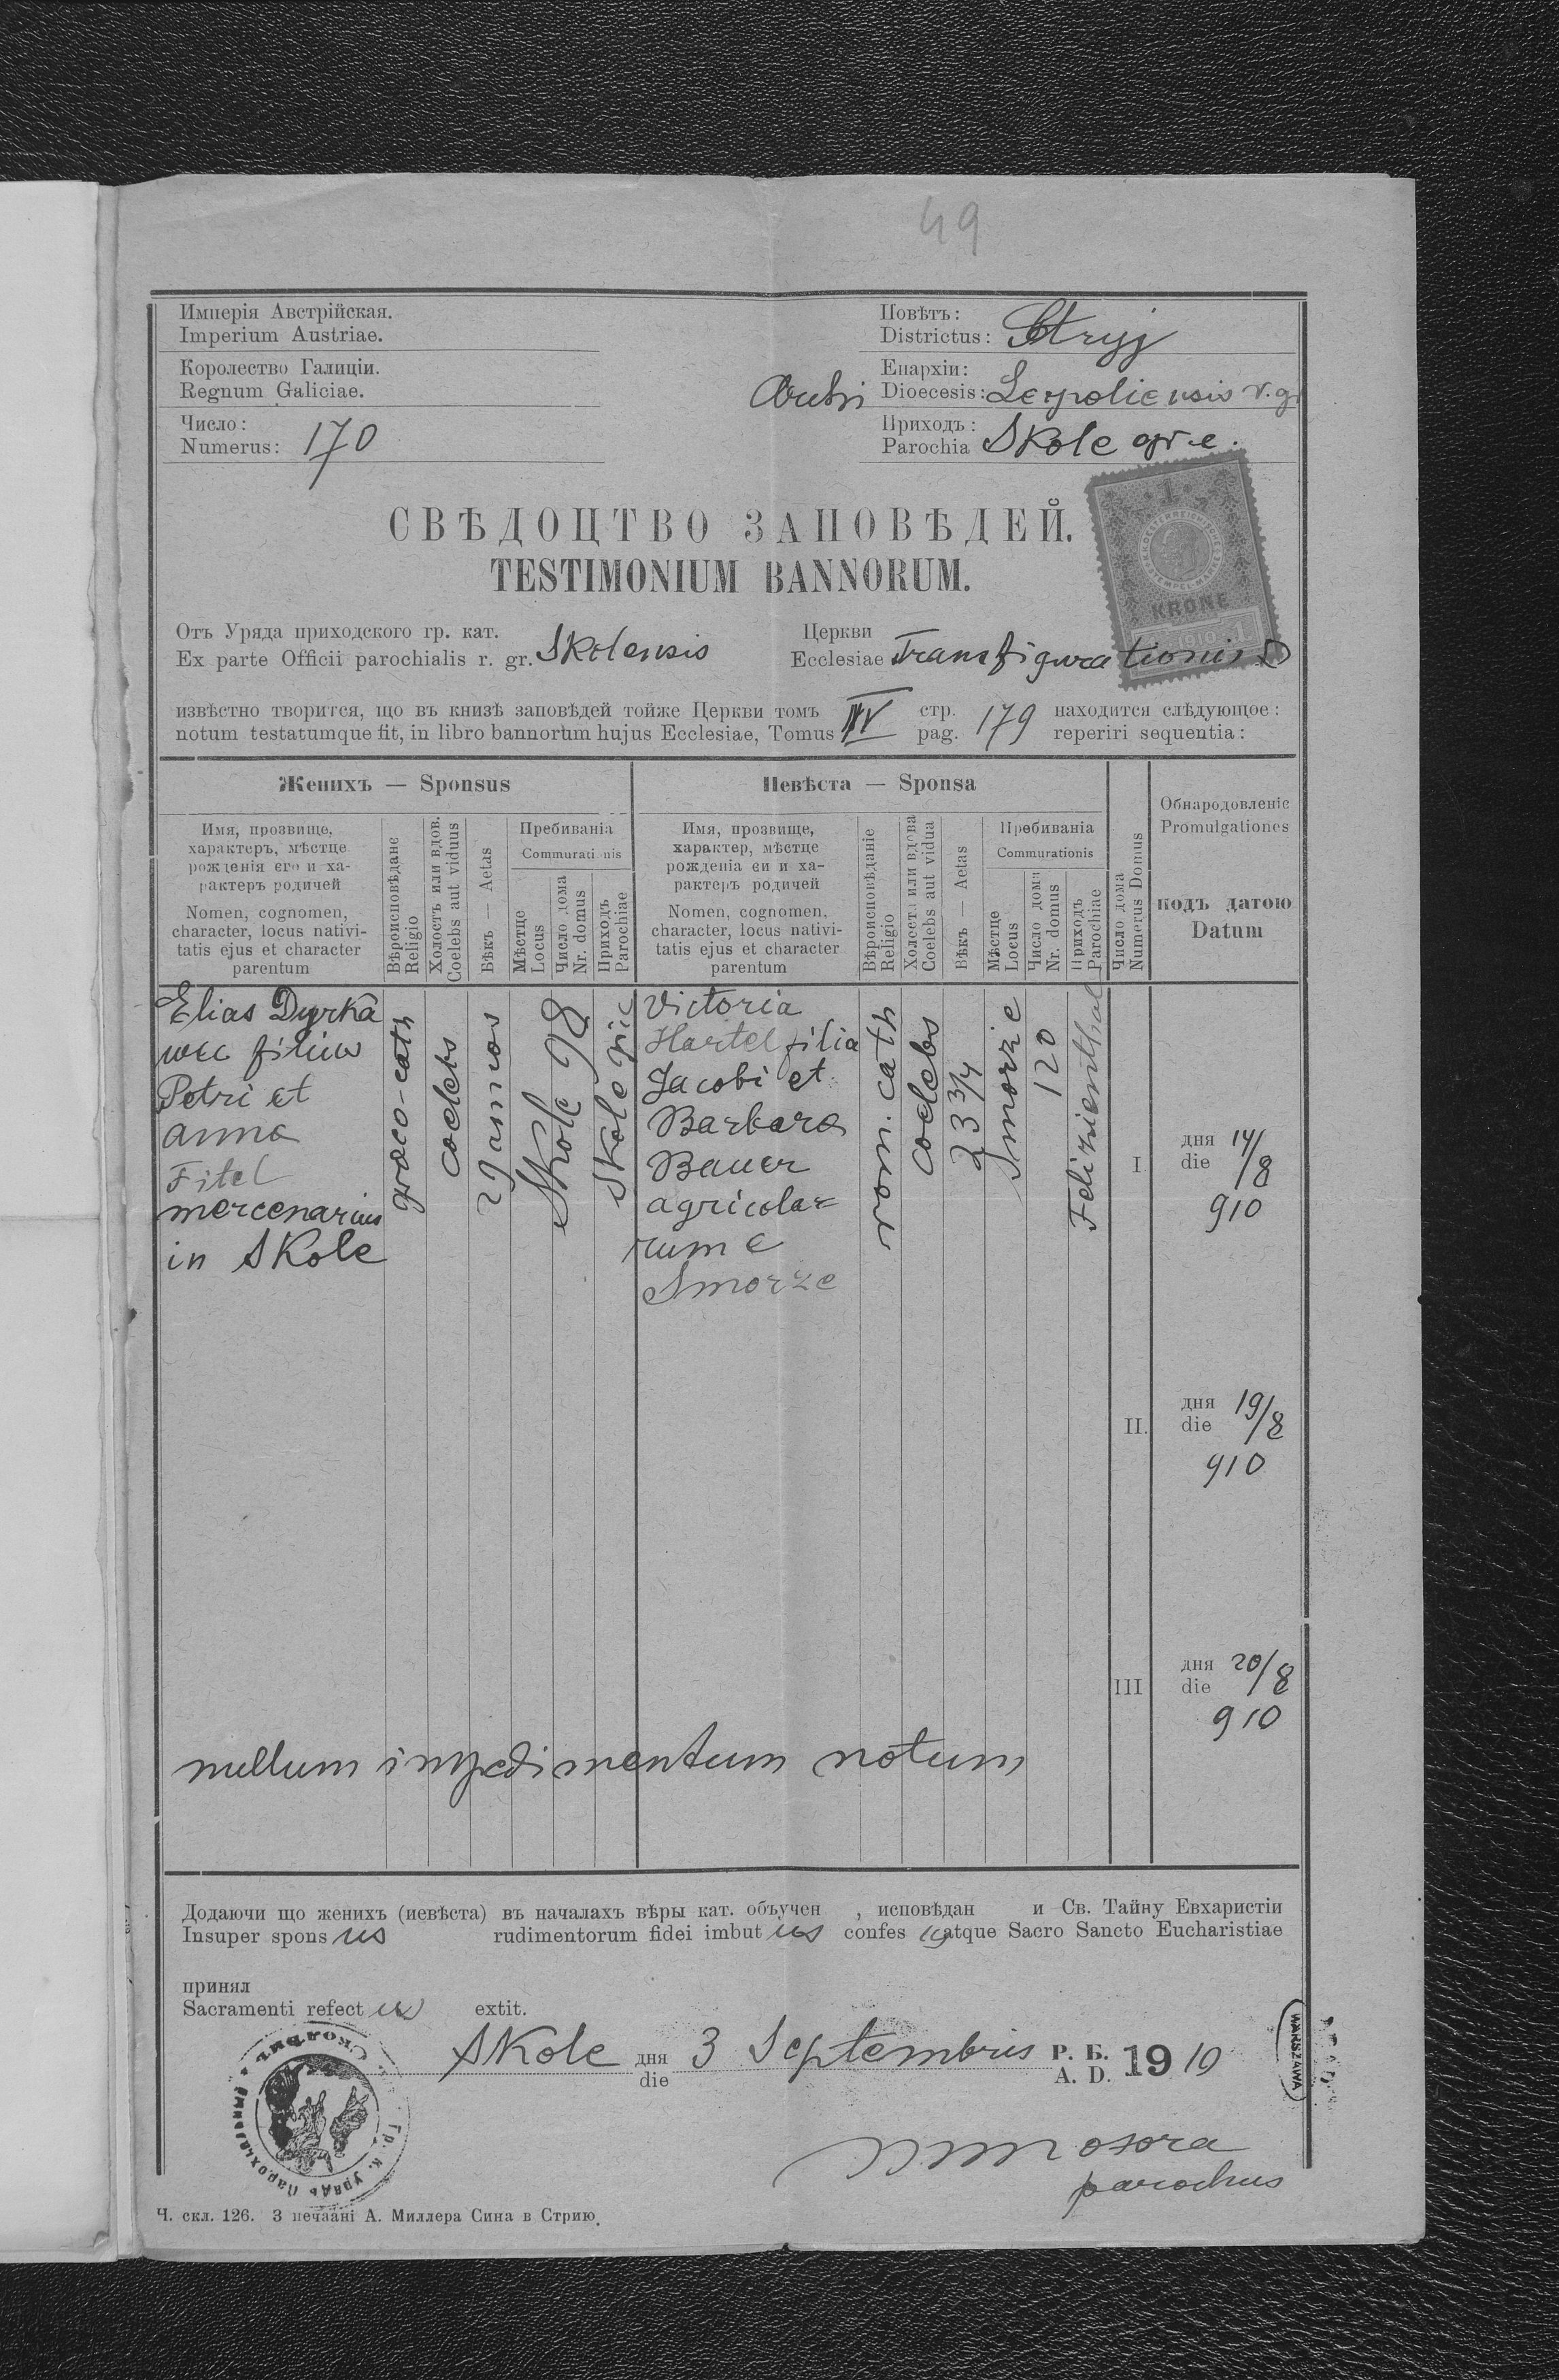 49
Имперія Австрійская.
Imperium Austriae.
Королество Галиціи.
Regnum Galiciae.
Число:
Numerus: 170
Повѣтъ:
Districtus: Stryj
Епархіи:
Dioecesis: Leopoliensis r. gr
Приходъ:
Parochia Skole gr. c.
СВѢДОЦТВО ЗАПОВѢДЕЙ.
TESTIMONIUM BANNORUM.
1
KRONE
1910 1
Отъ Уряда приходского гр. кат.
Ex parte Officii parochialis r. gr. Skolensis
Церкви
Ecclesiae Transfigurationis D
извѣстно творится, що въ книзѣ заповѣдей тойже Церкви томъ стр. находится слѣдующое:
notum testatumque fit, in libro bannorum hujus Ecclesiae, Tomus IV pag. 179 reperiri sequentia:
Женихъ — Sponsus
Невѣста — Sponsa
Имя, прозвище,
характеръ, мѣстце
рожденія его и ха-
рактеръ родичей
Nomen, cognomen,
character, locus nativi-
tatis ejus et character
parentum
Вѣроисповѣдане
Religio
Холостъ или вдов.
Coelebs aut viduus
Вѣкъ — Aetas
Пребиванія
Commurationis
Мѣстце
Locus
Число дома
Nr. domus
Приходъ
Parochiae
Имя, прозвище,
характер, мѣстце
рожденіа еи и ха-
рактеръ родичей
Nomen, cognomen,
character, locus nativi-
tatis ejus et character
parentum
Вѣроисповѣданіе
Religio
Холоста или вдова
Coelebs aut vidua
Вѣкъ — Aetas
Пребиванія
Commurationis
Мѣстце
Locus
Число дома
Nr. domus
Приходъ
Parochiae
Число дома
Numerus Domus
Обнародовленіе
Promulgationes
подъ датою
Datum
Elias Dyrka
nec filius
Petri et
Anna
Fitel
mercenarius
in Skole
graeco-cath
coelebs
29 annos
Skole
98
Skole
Victoria
Hartel filia
Jacobi et
Barbara
Bauer
agricola=
rum e
Smorze
rom. cath
coelebs
23 3/4
Smorzie
120
Felizienthal
I.
дня 14/8
die
910
II.
дня 19/8
die
910
III
дня 20/8
die
910
nullum impedimentum notum
Додаючи що женихъ (невѣста) въ началахъ вѣры кат. объучен , исповѣдан и Св. Тайну Евхаристіи
Insuper spons us rudimentorum fidei imbut us confes us atque Sacro Sancto Eucharistiae
принял
Sacramenti refect us extit.
Skole дня 3 Septembris Р. Б. 1910
die A. D.
parochus
WARSZAWA
Ч. скл. 126. З печатні А. Миллера Сина в Стрию.